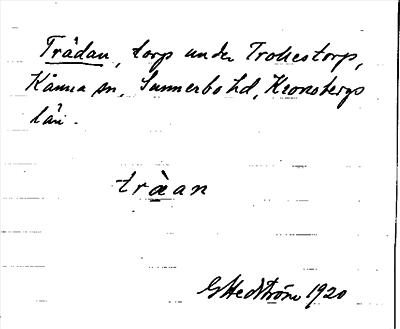 Trådan, torp under Trotestorp,
Kånna sn, Sunnerbo hd, Kronobergs
län.
tràan
G Hedström 1920